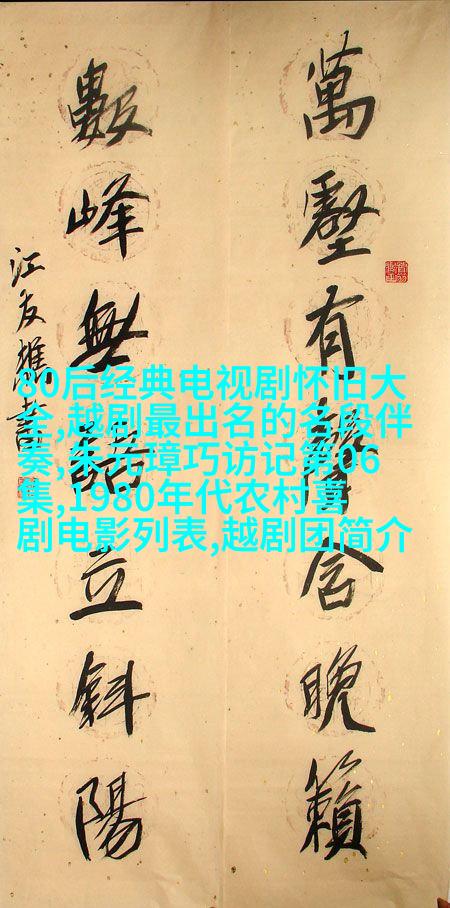 萬壑有聲含晚籟
數峰無語立斜陽
江友樵書
80后经典电视剧怀旧大
全,越剧最出名的名段伴
奏,朱元璋巧访记第06
集,1980年代农村喜
剧电影列表,越剧团简介